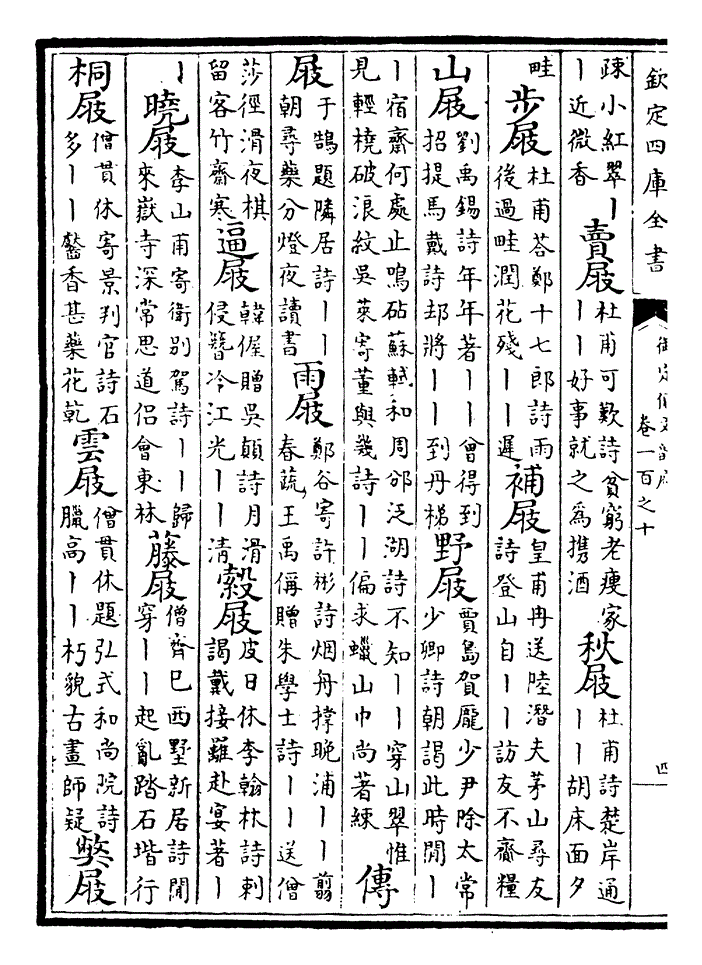 欽定四庫全書
御定佩文韻府
卷一百之十
四
疎小紅翠丨
丨近微香
賣屐
杜甫可歎詩貧窮老瘦家
丨丨好事就之為攜酒
秋屐
杜甫詩楚岸通
丨丨胡床面夕
畦
步屐
杜甫荅鄭十七郎詩雨
後過畦潤花殘丨丨遲
補屐
皇甫冉送陸潛夫茅山尋友
詩登山自丨丨訪友不齎糧
山屐
劉禹錫詩年年著丨丨曾得到
招提馬戴詩却將丨丨到丹梯
野屐
賈島賀龐少尹除太常
少卿詩朝謁此時閒丨
丨宿齋何處止鳴砧蘇軾和周邠泛湖詩不知丨丨穿山翠惟
見輕橈破浪紋吳萊寄董與幾詩丨丨偏求蠟山巾尚著綀
傳
屐
于鵠題隣居詩丨丨
朝尋藥分燈夜讀書
雨屐
鄭谷寄許彬詩烟舟撐晚浦丨丨剪
春蔬王禹偁贈朱學士詩丨丨送僧
莎徑滑夜棋
留客竹齋寒
逼屐
韓偓贈吳顛詩月滑
侵簪冷江光丨丨清
縠屐
皮日休李翰林詩刺
謁戴接䍦赴宴著丨
丨
曉屐
李山甫寄衛別駕詩丨丨歸
來嶽寺深常思道侶會東林
藤屐
僧齊己西墅新居詩閒
穿丨丨起亂踏石堦行
桐屐
僧貫休寄景判官詩石
多丨丨齾香甚藥花乾
雲屐
僧貫休題弘式和尚院詩
臘高丨丨朽貌古畫師疑
弊屐